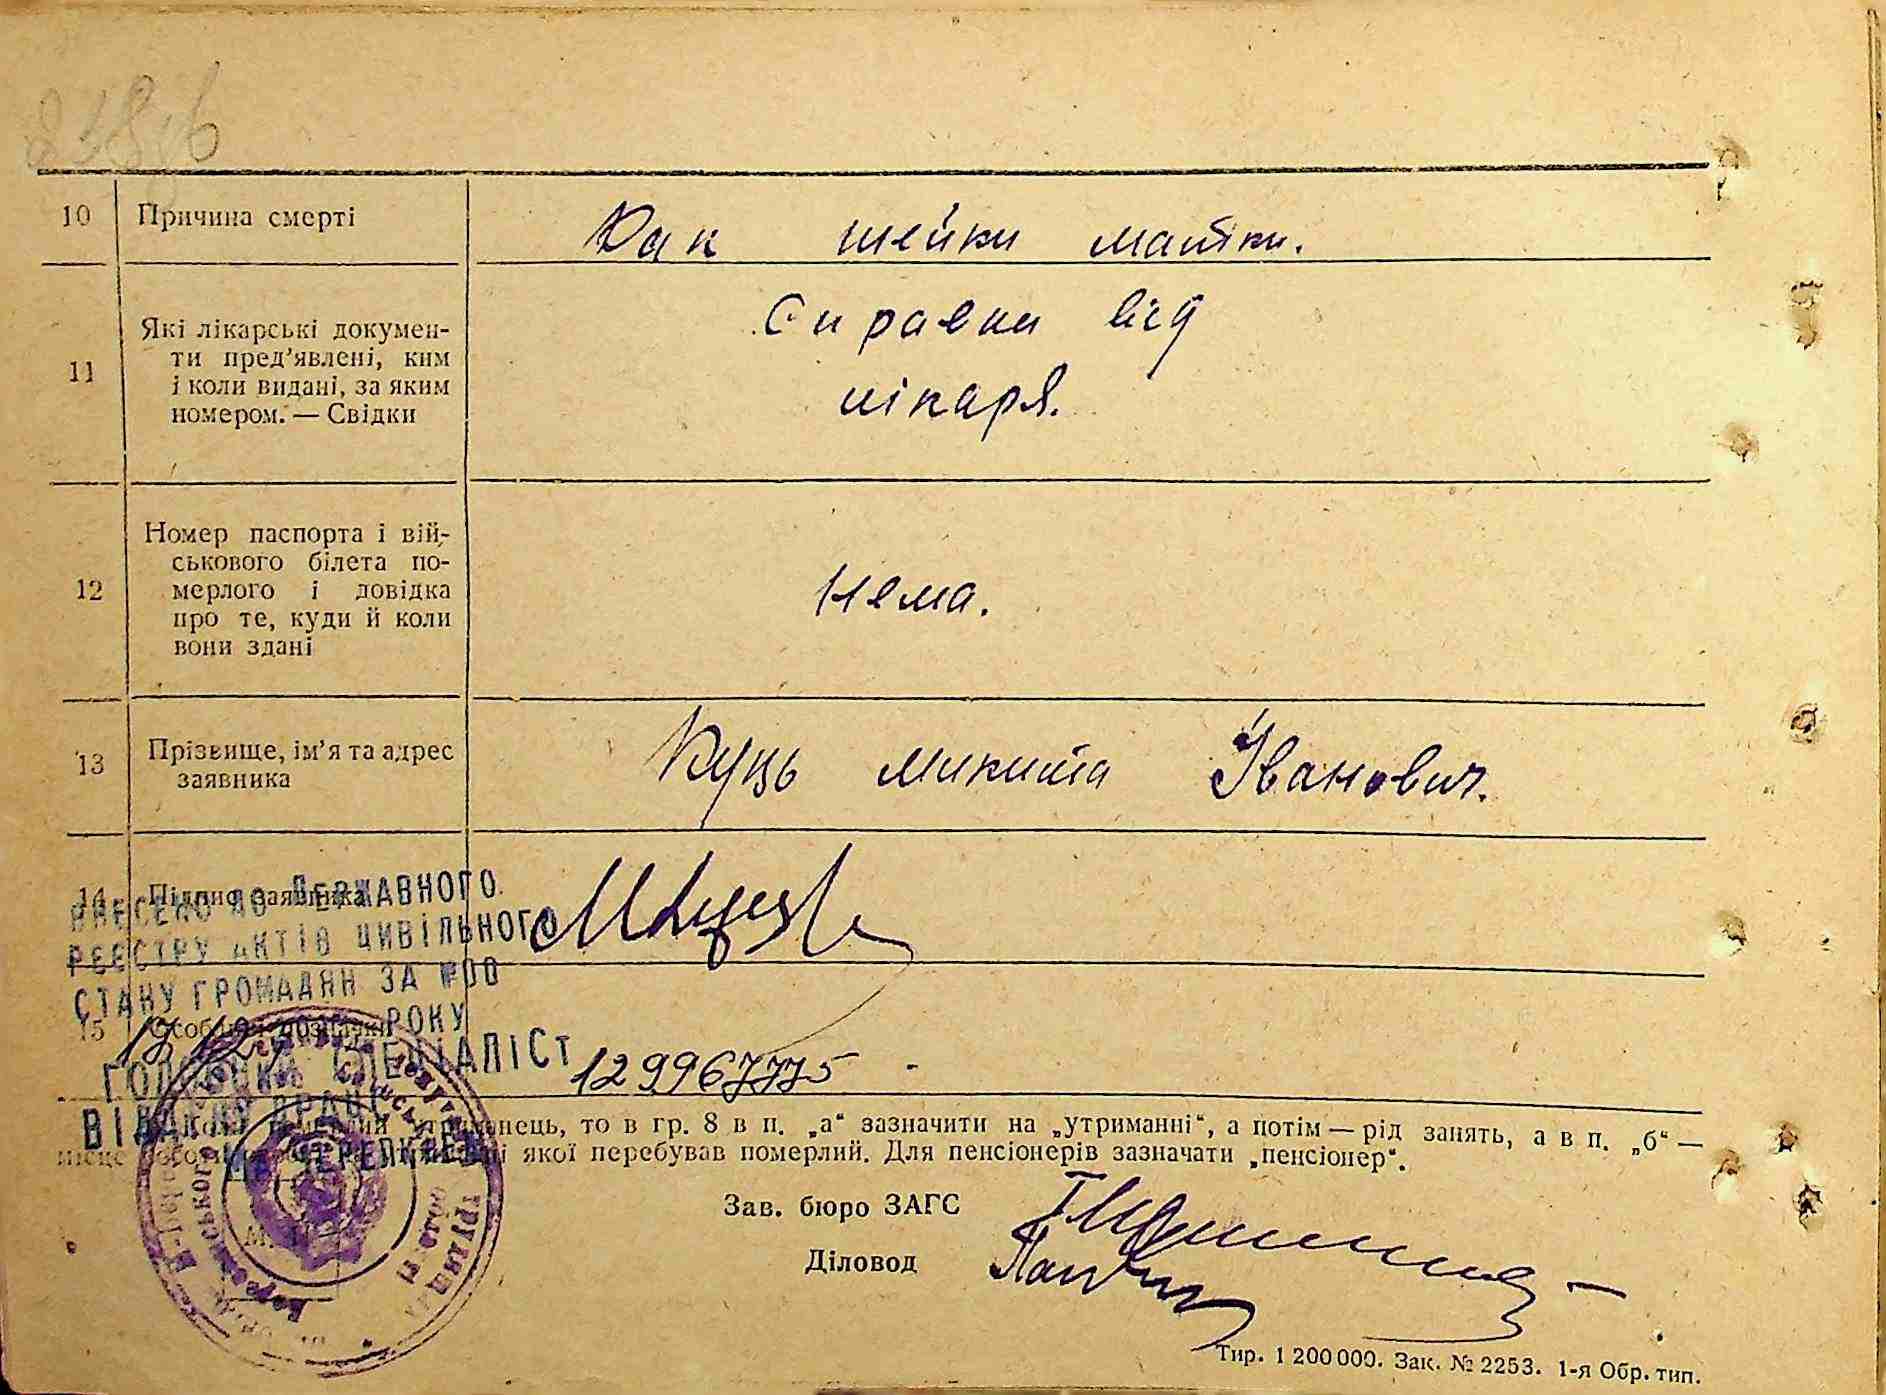 10 Причина смерті
Рак шейки матки.
11 Які лікарські докумен-
ти пред'явлені, ким
і коли видані, за яким
номером. — Свідки
Справки від
лікаря.
12 Номер паспорта і вій-
ськового білета по-
мерлого і довідка
про те, куди й коли
вони здані
Нема.
13 Прізвище, ім'я та адрес
заявника
Куць Микита Іванович.
14 Підпис заявника
ВНЕСЕНО ДО ДЕРЖАВНОГО
РЕЄСТРУ АКТІВ ЦИВІЛЬНОГО
СТАНУ ГРОМАДЯН ЗА №00
РОКУ
15 Особливі
ГОЛОВНИЙ СПЕЦІАЛІСТ
129967775
ВІДДІЛУ ДРАЦС
утриманець, то в гр. 8 в п. „а“ зазначити на „утриманні“, а потім — рід занять, а в п. „б“ —
місце якої перебував померлий. Для пенсіонерів зазначати „пенсіонер“.
Зав. бюро ЗАГС
Діловод
Тир. 1 200 000. Зак. № 2253. 1-я Обр. тип.